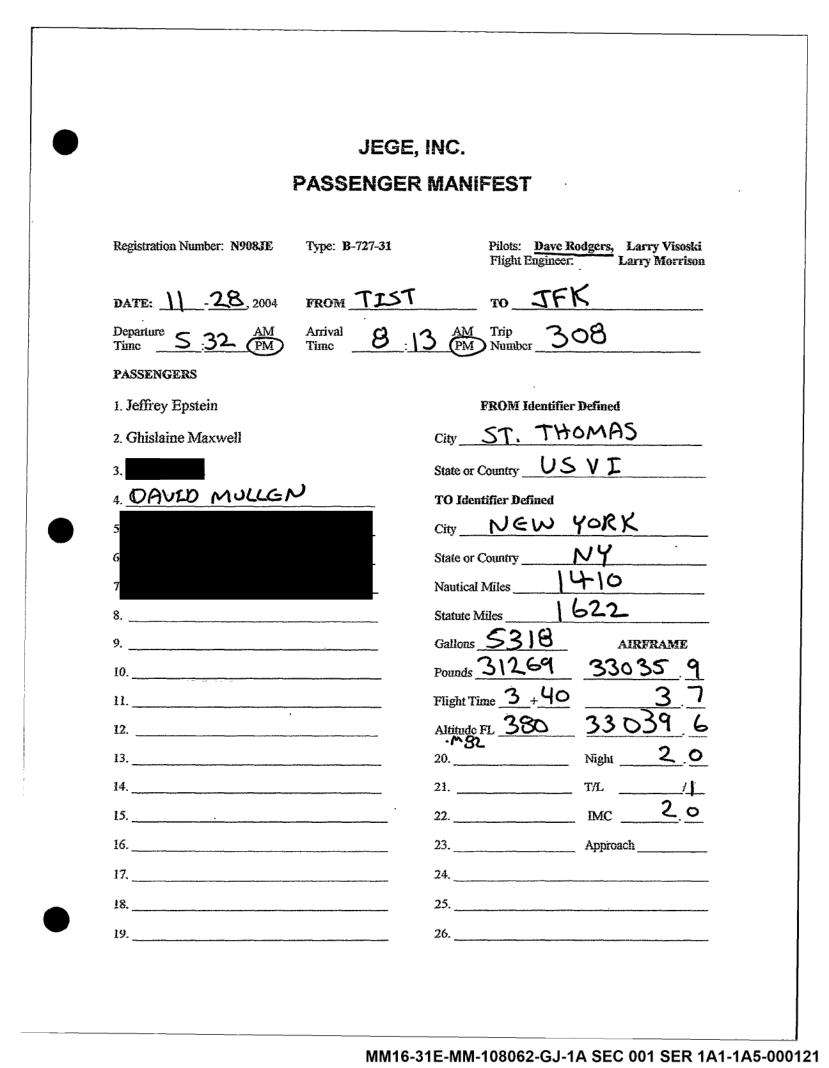 JEGE, INC.
PASSENGER MANIFEST
Registration Number: N908JE Type: B-727-31 Pilots: Dave Rodgers, Larry Visoski
Flight Engineer: Larry Morrison
DATE: 11 - 28, 2004 FROM TIST TO JFK
Departure Time 5 : 32 AM PM Arrival Time 8 : 13 AM PM Trip Number 308
PASSENGERS
1. Jeffrey Epstein FROM Identifier Defined
2. Ghislaine Maxwell City ST. THOMAS
3. State or Country USVI
4. DAVID MULLEN TO Identifier Defined
5 City NEW YORK
6 State or Country NY
7 Nautical Miles 1410
8. Statute Miles 1622
9. Gallons 5318 AIRFRAME
10. Pounds 31269 33035 . 9
11. Flight Time 3 + 40 3 . 7
12. Altitude FL 380 33039 6
.M82
13. 20. Night 2 . 0
14. 21. T/L / 1
15. 22. IMC 2 . 0
16. 23. Approach
17. 24.
18. 25.
19. 26.
MM16-31E-MM-108062-GJ-1A SEC 001 SER 1A1-1A5-000121